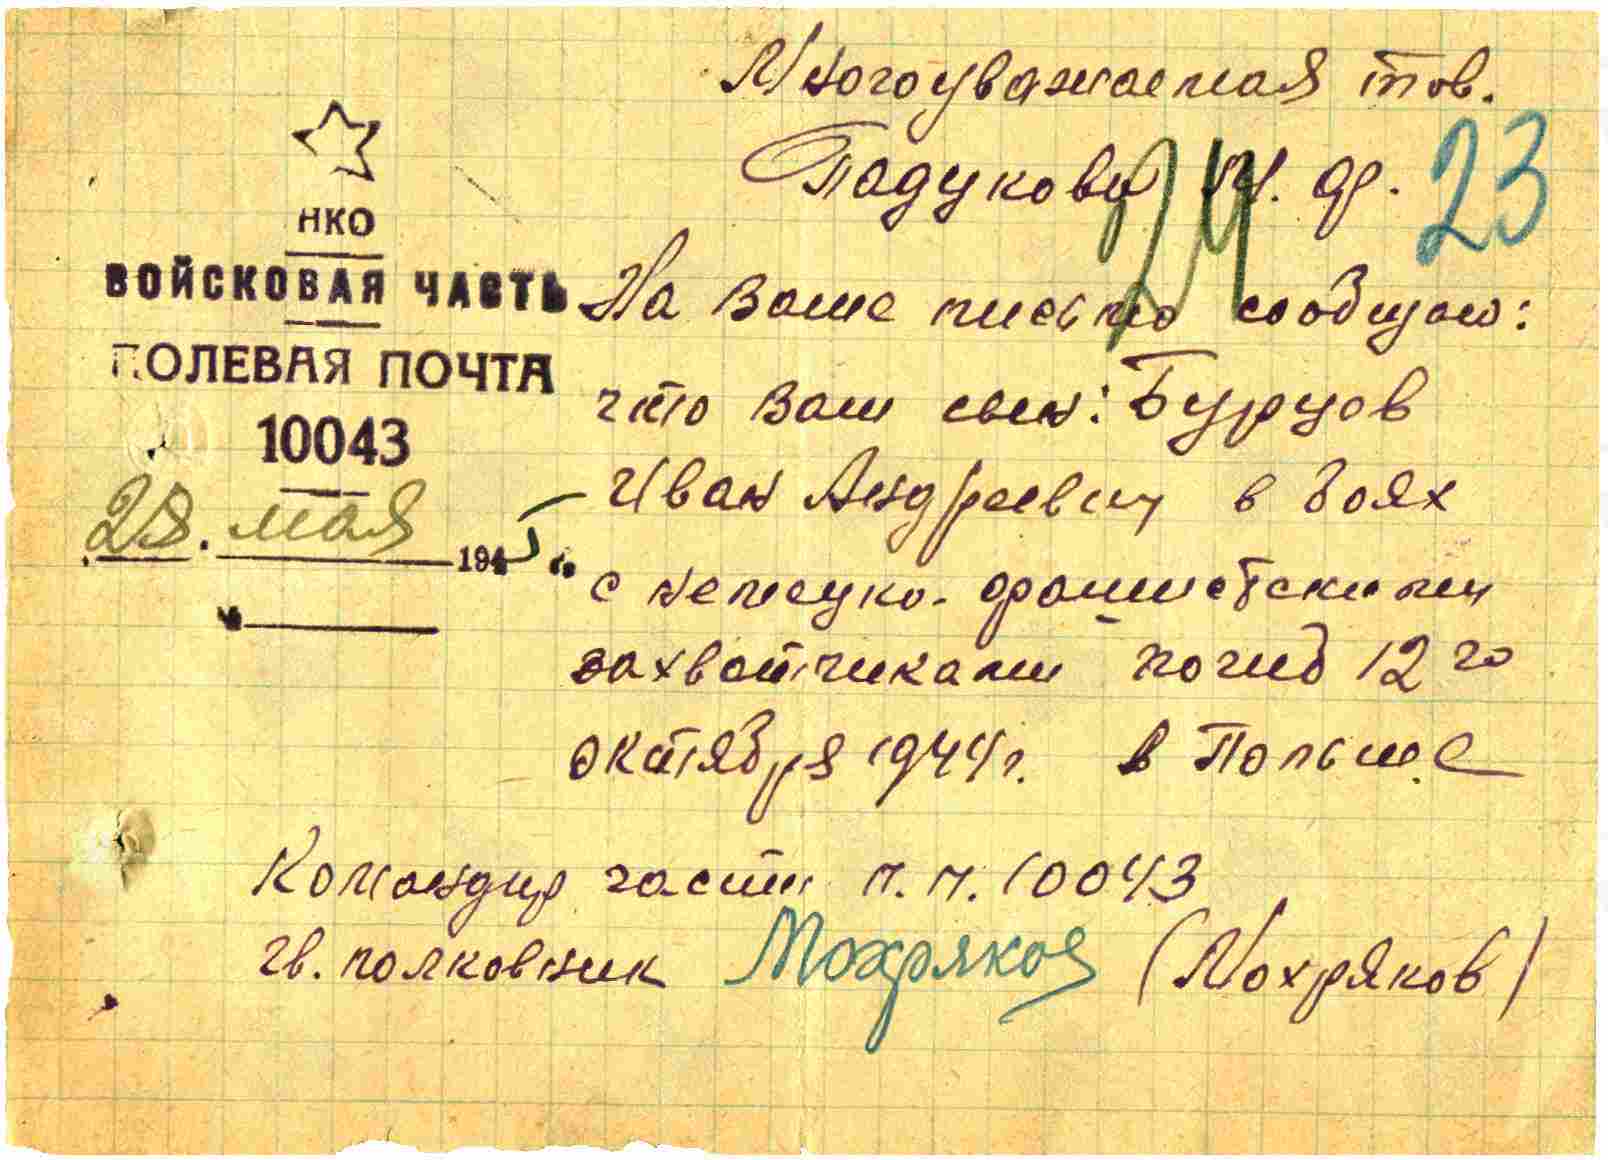 НКО
ВОЙСКОВАЯ ЧАСТЬ
ПОЛЕВАЯ ПОЧТА
10043
28. мая 1945
Многоуважаемая тов.
Падукова И. Ф.
23
24
На Ваше письмо сообщаю:
что Ваш сын: Бурцов
Иван Андреевич в боях
с немецко-фашистскими
захватчиками погиб 12 го
октября 1944 г. в Польше
Командир части п.п. 10043
гв. полковник Мохряков (Мохряков)